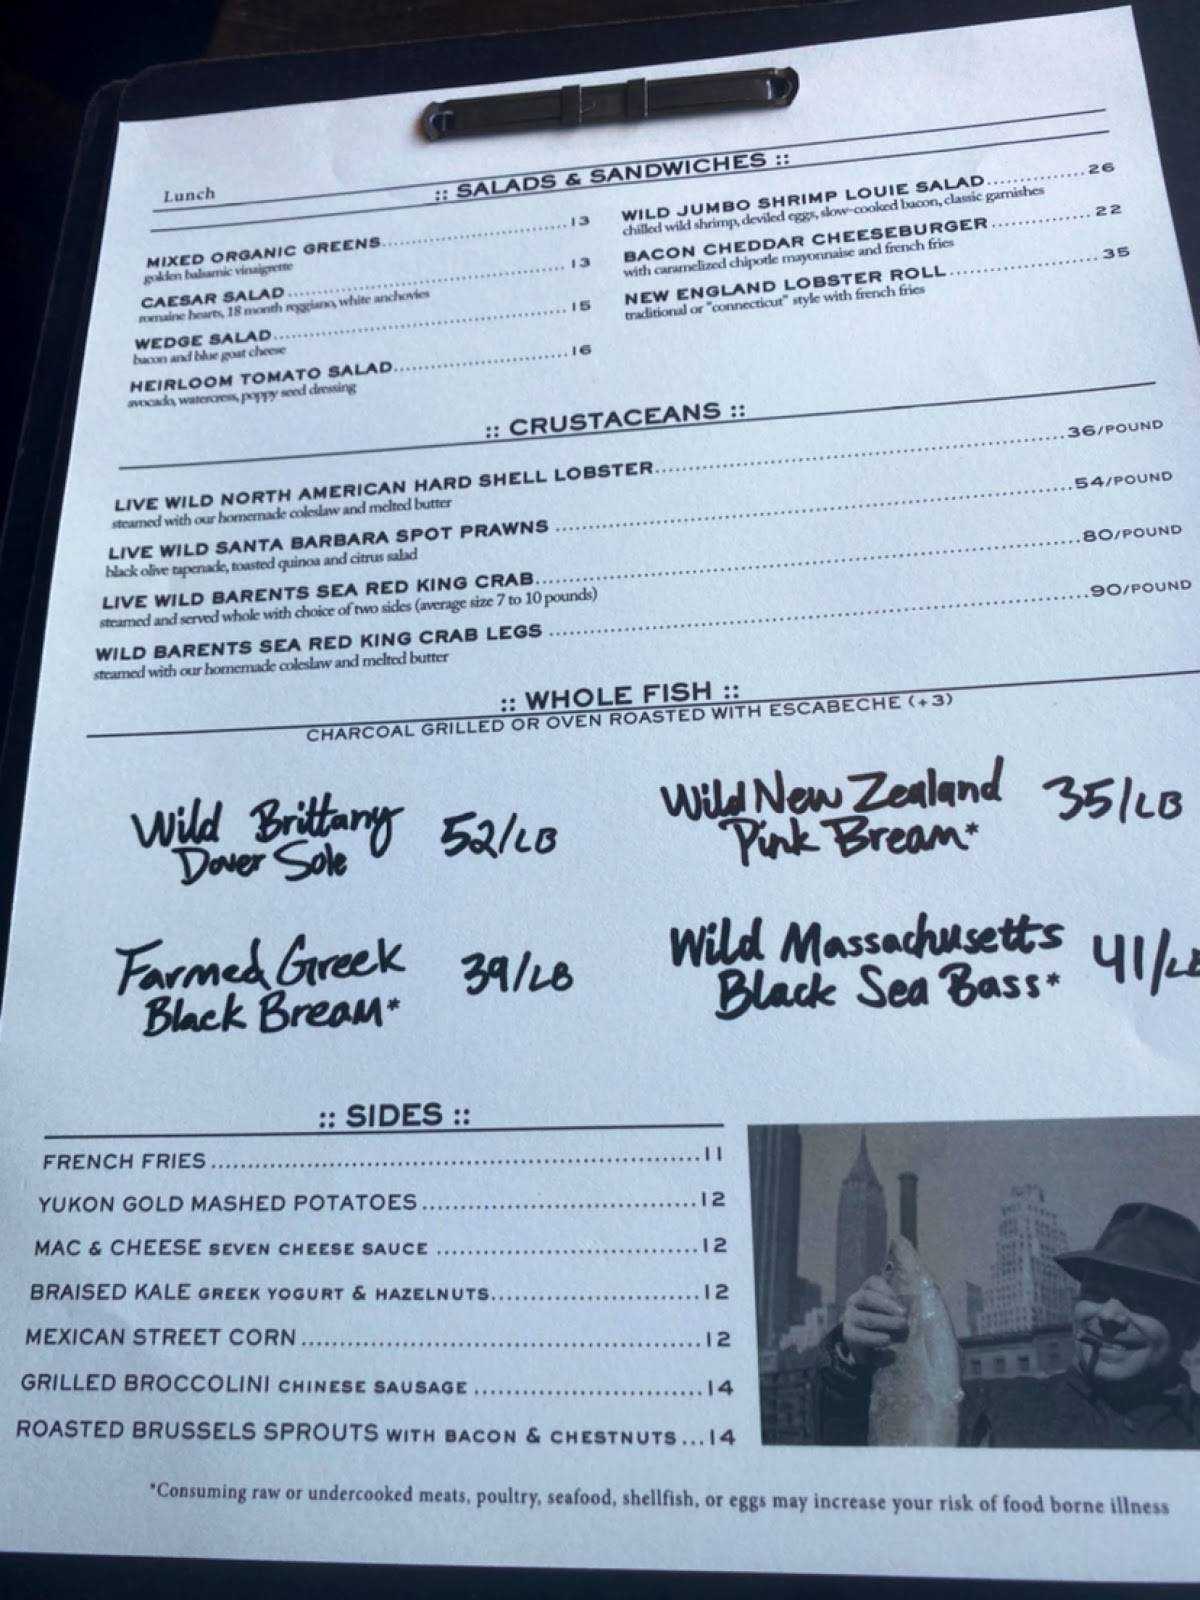 Lunch
:: SALADS & SANDWICHES ::
MIXED ORGANIC GREENS 13
golden balsamic vinaigrette
CAESAR SALAD 13
romaine hearts, 18 month reggiano, white anchovies
WEDGE SALAD 15
bacon and blue goat cheese
HEIRLOOM TOMATO SALAD 16
avocado, watercress, poppy seed dressing
WILD JUMBO SHRIMP LOUIE SALAD 26
chilled wild shrimp, deviled eggs, slow-cooked bacon, classic garnishes
BACON CHEDDAR CHEESEBURGER 22
with caramelized chipotle mayonnaise and french fries
NEW ENGLAND LOBSTER ROLL 35
traditional or "connecticut" style with french fries
:: CRUSTACEANS ::
LIVE WILD NORTH AMERICAN HARD SHELL LOBSTER 36/POUND
steamed with our homemade coleslaw and melted butter
LIVE WILD SANTA BARBARA SPOT PRAWNS 54/POUND
black olive tapenade, toasted quinoa and citrus salad
LIVE WILD BARENTS SEA RED KING CRAB 80/POUND
steamed and served whole with choice of two sides (average size 7 to 10 pounds)
WILD BARENTS SEA RED KING CRAB LEGS 90/POUND
steamed with our homemade coleslaw and melted butter
:: WHOLE FISH ::
CHARCOAL GRILLED OR OVEN ROASTED WITH ESCABECHE (+3)
Wild Brittany
Dover Sole 52/LB
Wild New Zealand
Pink Bream* 35/LB
Farmed Greek
Black Bream* 39/LB
Wild Massachusetts
Black Sea Bass* 41/LB
:: SIDES ::
FRENCH FRIES 11
YUKON GOLD MASHED POTATOES 12
MAC & CHEESE SEVEN CHEESE SAUCE 12
BRAISED KALE GREEK YOGURT & HAZELNUTS 12
MEXICAN STREET CORN 12
GRILLED BROCCOLINI CHINESE SAUSAGE 14
ROASTED BRUSSELS SPROUTS WITH BACON & CHESTNUTS 14
*Consuming raw or undercooked meats, poultry, seafood, shellfish, or eggs may increase your risk of food borne illness